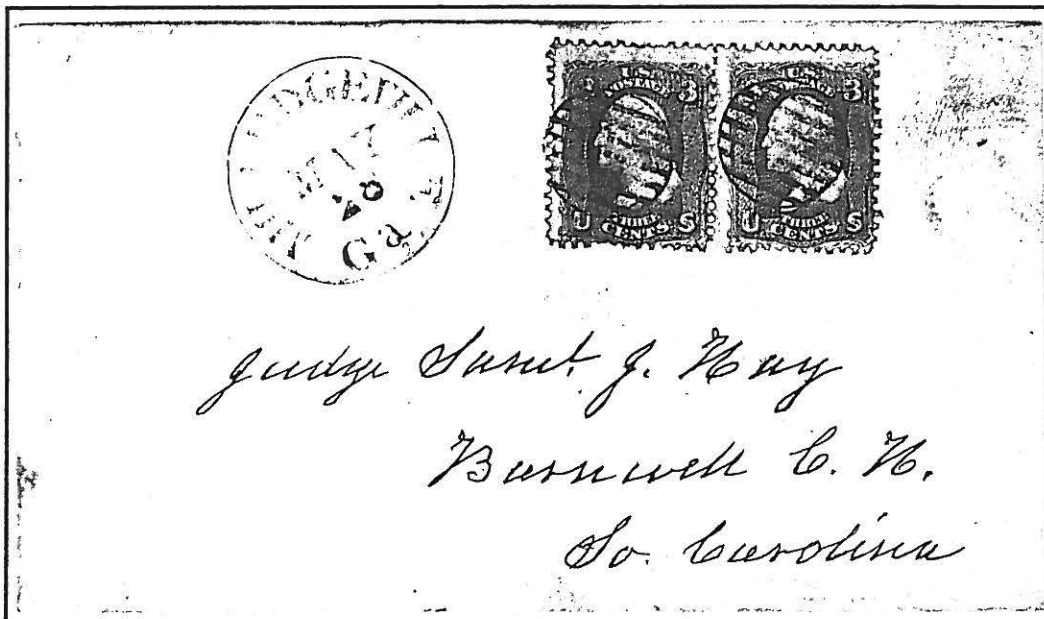 MILLEDGEVILLE
Ga.
U.S. POSTAGE
3
U S
THREE CENTS
U.S. POSTAGE
3
U S
THREE CENTS
Judge Saml. J. Hay
Barnwell C. H.
So. Carolina